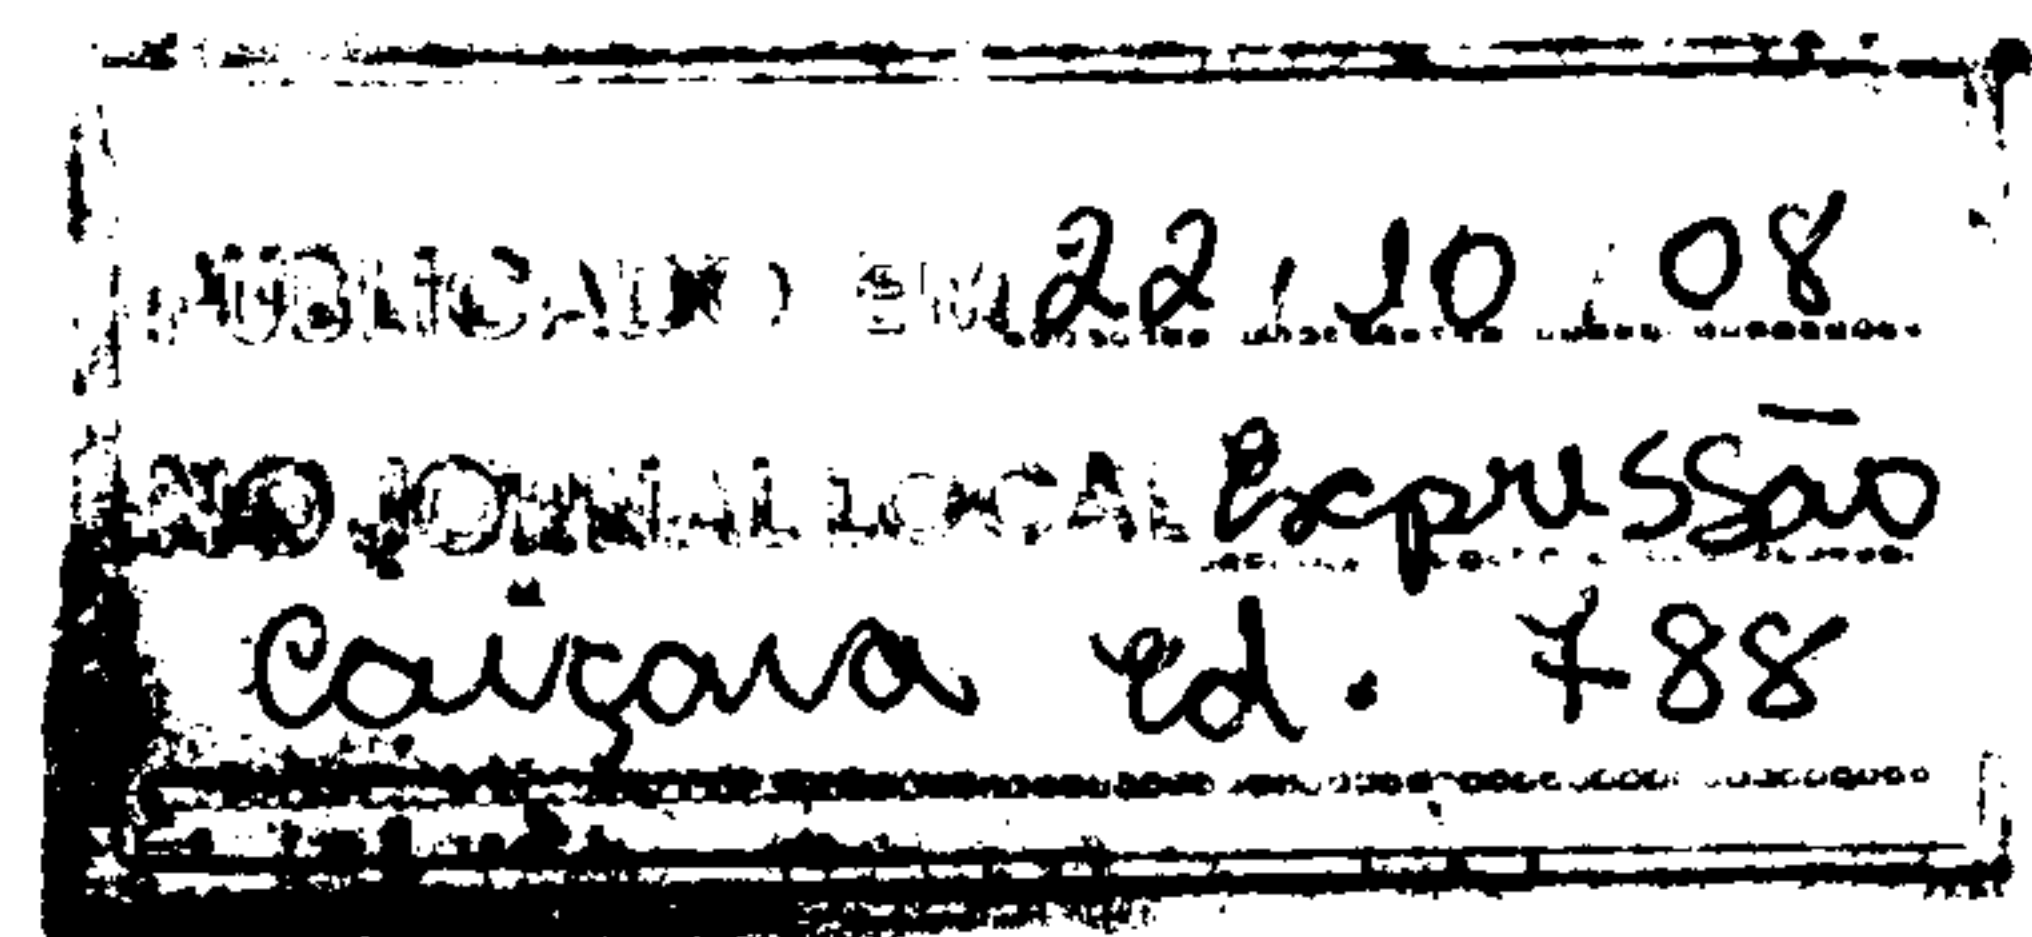 PUBLICADO EM 22/10/08
NO JORNAL LOCAL Expressão
Caiçara Ed. 788